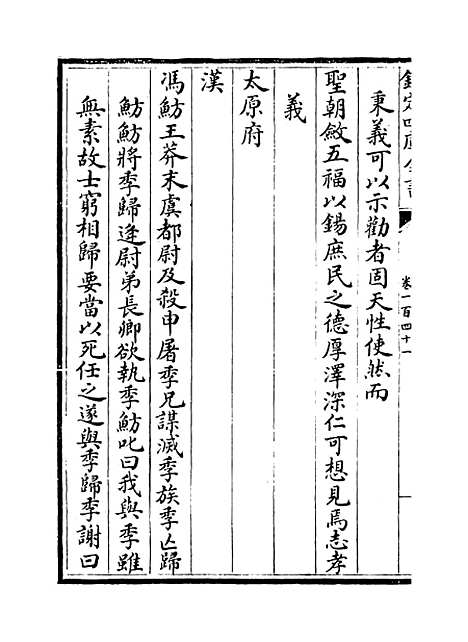 欽定四庫全書
卷一百四十一
秉義可以示勸者固天性使然而
聖朝斂五福以錫庶民之德厚澤深仁可想見焉志孝
義
太原府
漢
馮魴王莽末虞都尉反殺申屠季兄謀滅季族季亡歸
魴魴將季歸逢尉弟長卿欲執季魴叱曰我與季雖
無素故士窮相歸要當以死任之遂與季歸季謝曰